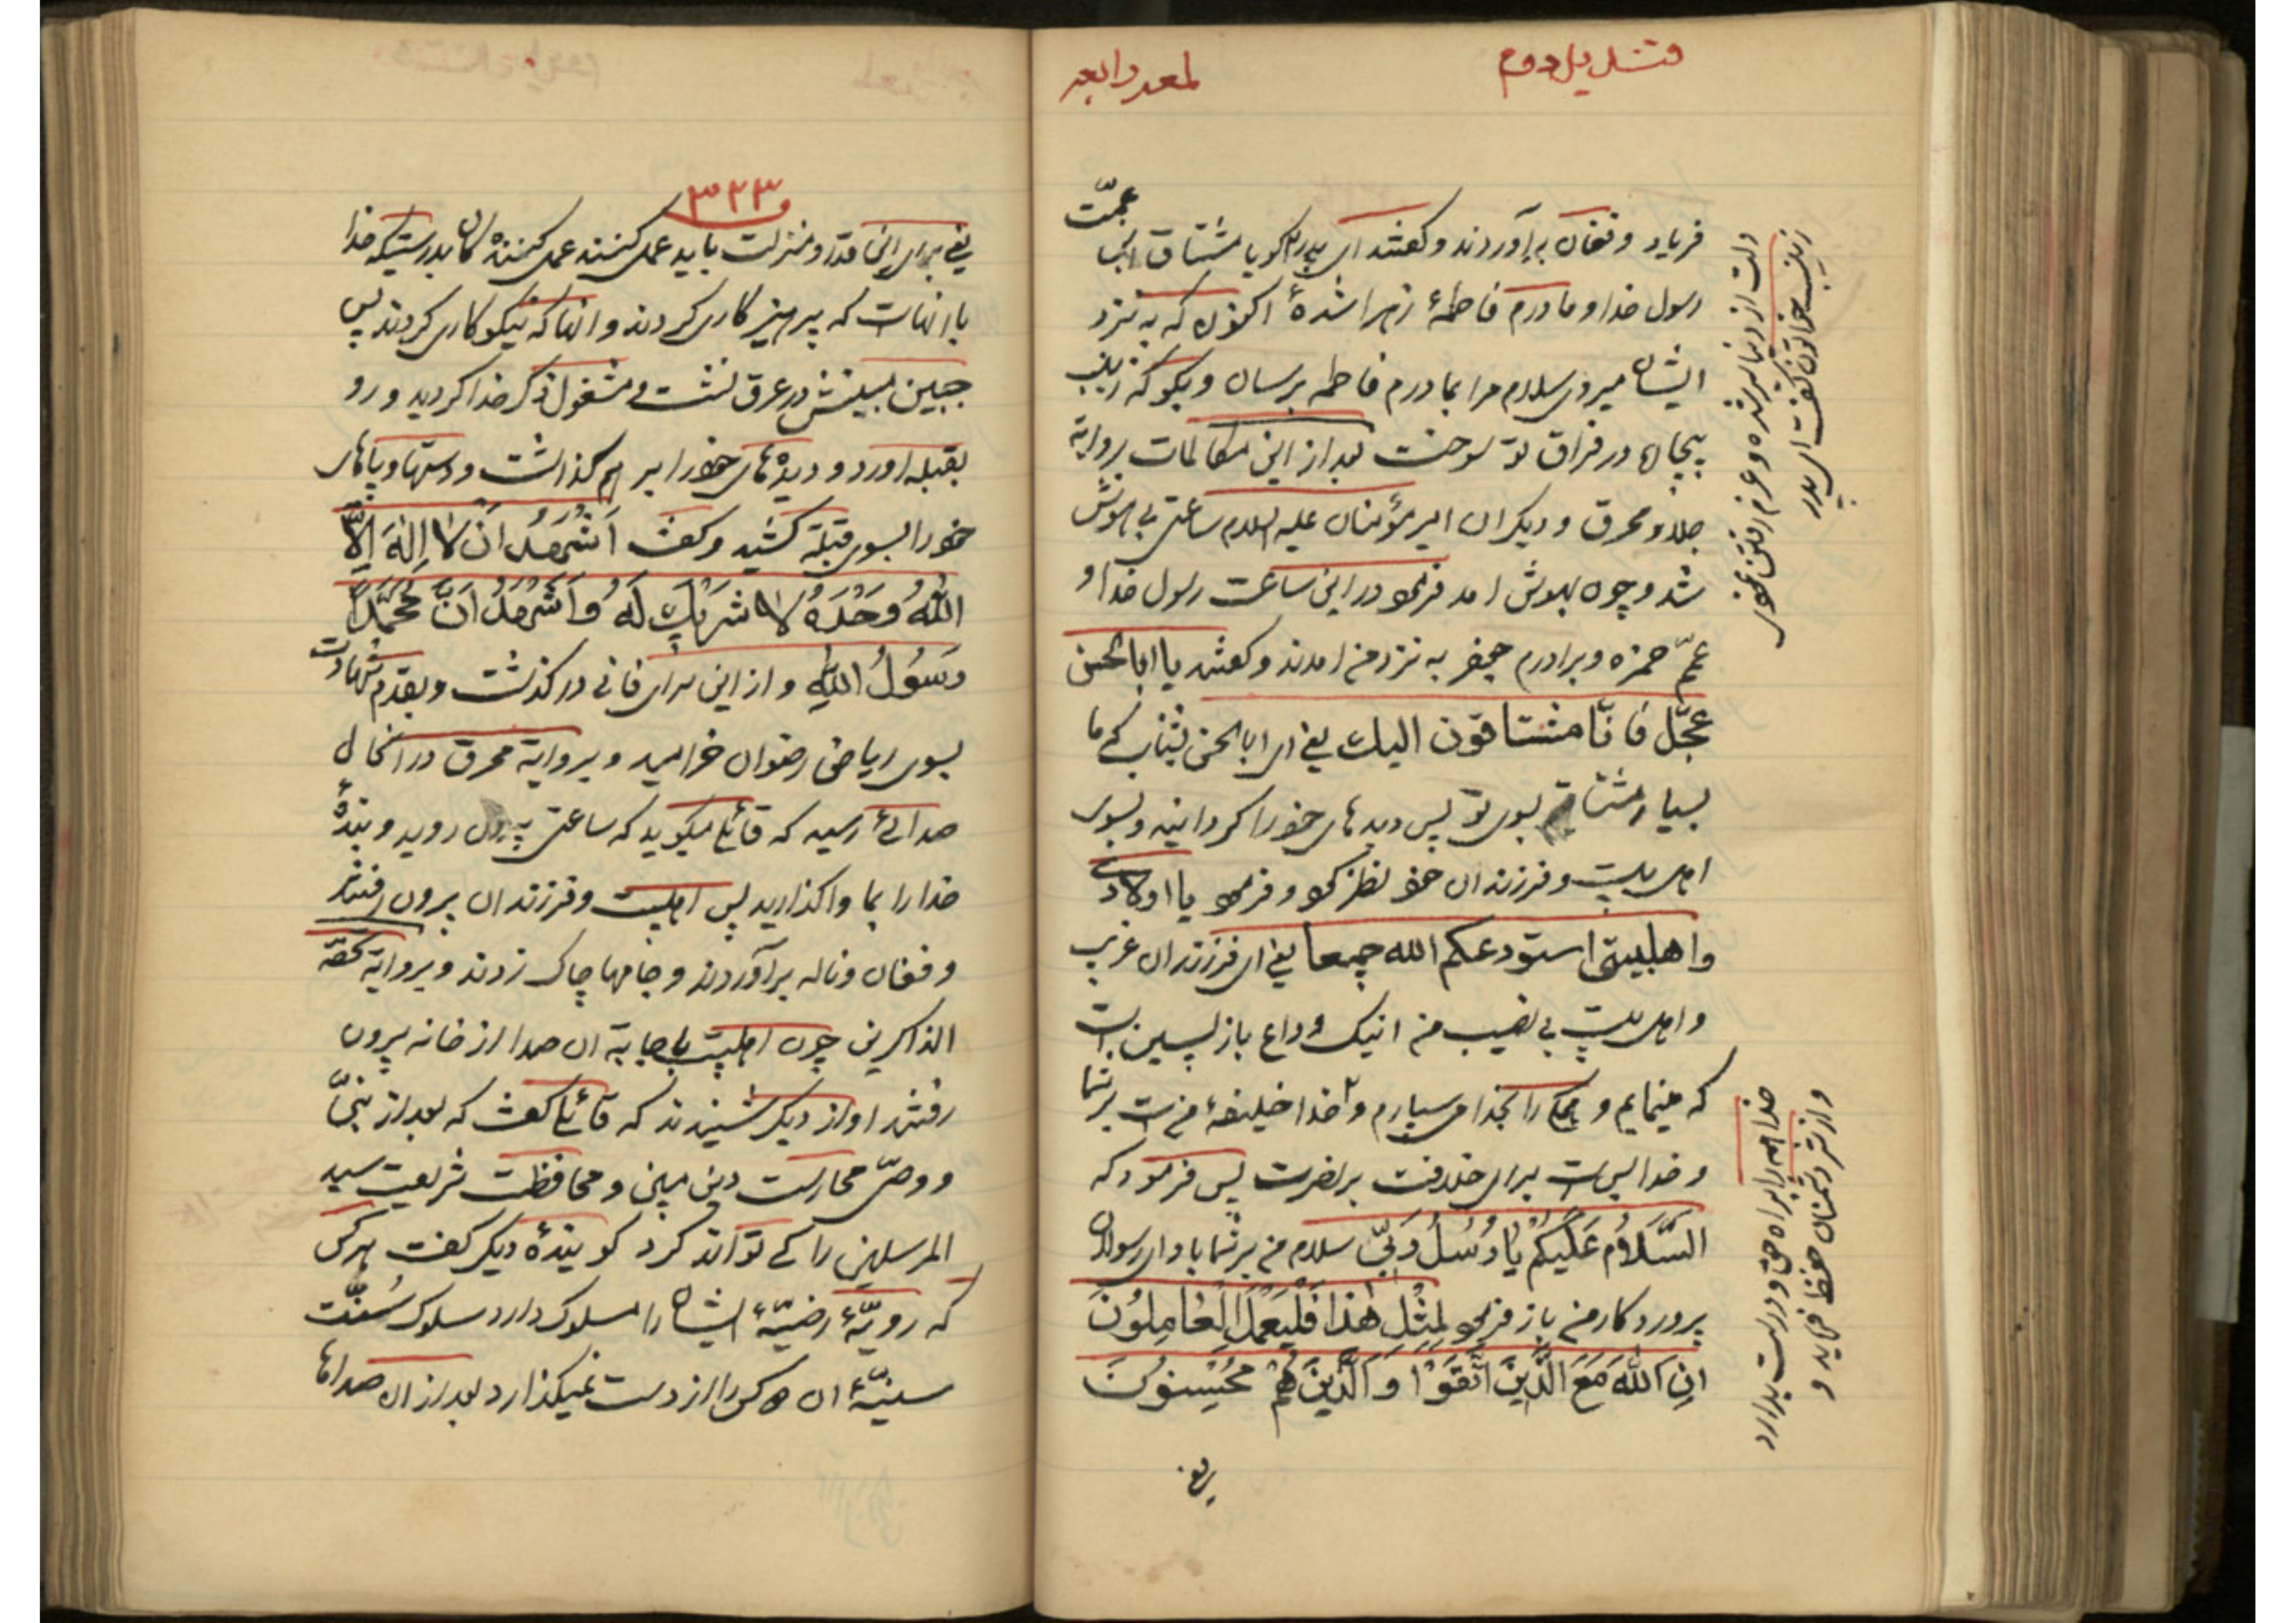 قندیل دوم
لمعه رابعه
فریاد و فغان برآوردند و گفتند ای پدر گویا مشتاق لقای عمّت
رسول خدا و مادرم فاطمهٔ زهرا شدهٔ اکنون که به نزد
ایشان میروی سلام مرا بمادرم فاطمه برسان و بگو که زینب
بیجان در فراق تو سوخت بعد از این مکالمات بروایة
جلاء و محرق و دیگران امیر مؤمنان علیه السلام ساعتی بی هوش
شد و چون بهوش امد فرمود در این ساعت رسول خدا و
عمّ حمزه و برادرم جعفر به نزد من امدند و گفتند یا ابا الحسن
عجّل فانّا مشتاقون الیك یعنی ای ابا الحسن بشتاب که ما
بسیار مشتاقیم بسوی تو پس دیدهای خود را گردانید و بسوی
اهل بیت و فرزندان خود نظر کرد و فرمود یا اولادی
و اهلبیتی استودعکم الله جمیعا یعنی ای فرزندان غریب
و اهل بیت بی نصیب من اینک وداع بازپسین است
که مینمایم و همه را بخدا میسپارم و خدا خلیفهٔ من است بر شما
و خدا بس است برای خلافت و نصرت پس فرمود که
السَّلَامُ عَلَیْکُمْ یَا رُسُلَ رَبّی سلام من بر شما باد ای رسولان
پروردگار من باز فرمود لِمِثْلِ هٰذَا فَلْیَعْمَلِ الْعَامِلُونَ
اِنَّ اللّٰهَ مَعَ الَّذِینَ اتَّقَوْا وَ الَّذِینَ هُمْ مُحْسِنُونَ
یعنی
زینب خواتون گفت ای پدر
دلت از دنیا سیر شده و عزم رفتن نموده
خدا همه را براه حق و درست بدارد
و از شر دشمنان حفظ فرماید و
۳۲۳
یعنی برای این قدر و منزلت باید عمل کنند عمل کنندگان بدرستیکه خدا
با انهاست که پرهیزکاری کردند و انها که نیکوکاری کردند پس
جبین مبینش در عرق نشست و مشغول ذکر خدا گردید و رو
بقبله اورد و دیدهای خود را بر هم گذاشت و دستها و پاهای
خود را بسوی قبله کشید و گفت اَشْهَدُ اَنْ لَا اِلٰهَ اِلَّا
اللّٰهُ وَحْدَهُ لَا شَرِیكَ لَهُ وَ اَشْهَدُ اَنَّ مُحَمَّدًا
رَسُولُ اللّٰهِ و از این سرای فانی درگذشت و بقدم شهادت
بسوی ریاض رضوان خرامید و بروایة محرق در انحال
صدائی رسید که قائلی میگوید که ساعتی بیرون روید و بندهٔ
خدا را بما واگذارید پس اهلبیت و فرزندان بیرون رفتند
و فغان و ناله برآوردند و جامها چاک زدند و بروایة تحفة
الذاکرین چون اهلبیت باجابة ان صدا از خانه بیرون
رفتند اواز دیگر شنیدند که قائلی گفت که بعد از نبیّ
و وصیّ محارست دین مبین و محافظت شریعت سید
المرسلین را که تواند کرد گویندهٔ دیگر گفت هر کس
که رویّهٔ رضیّهٔ ایشان را مسلوک دارد سلوک سُنَّت
سنیّهٔ ان دو کس را از دست نمیگذارد بعد از ان صداها